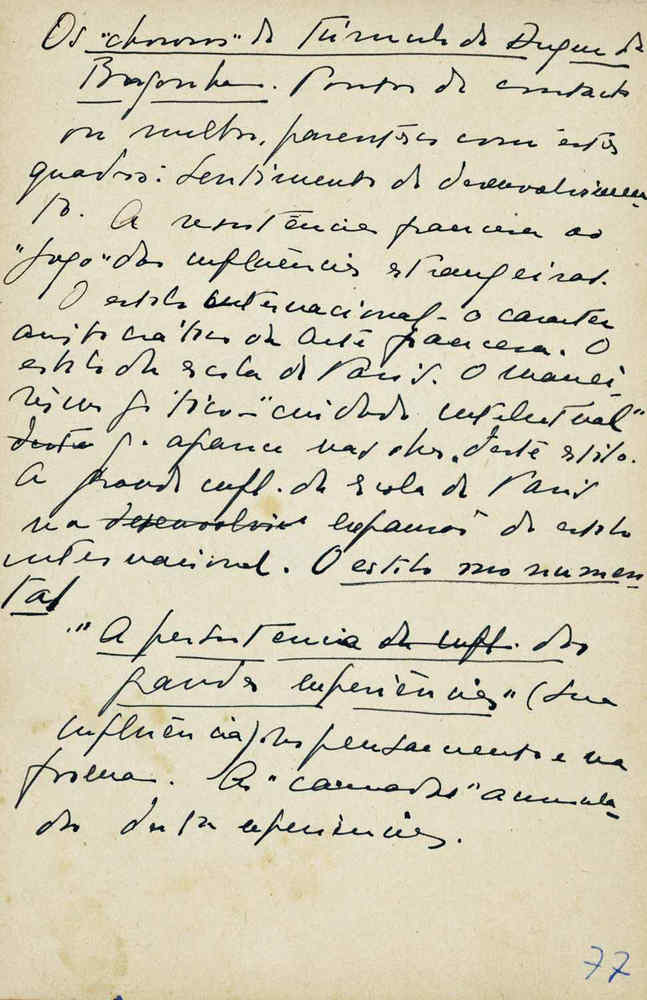 Os "choros" do Túmulo do Duque de
Borgonha. Pontos de contacto
ou melhor, parentesco com estes
quadros: Sentimento de desenvolvimen-
to. A resistência francesa ao
"jogo" das influências estrangeiras.
O estilo internacional - o caracter
aristocrático da arte francesa. O
estilo da escola de Paris. O manei-
rismo gótico - "cuidado intelectual"
desta q. aparece nas obras deste estilo.
A grande infl. da escola de Paris
na desenvolvim expansão do estilo
internacional. O estilo monumen-
tal
"A persistencia da infl. das
grandes experiências" (sua
influência) no pensamento e na
forma. As "camadas" acumula-
das desta experiencias.
77